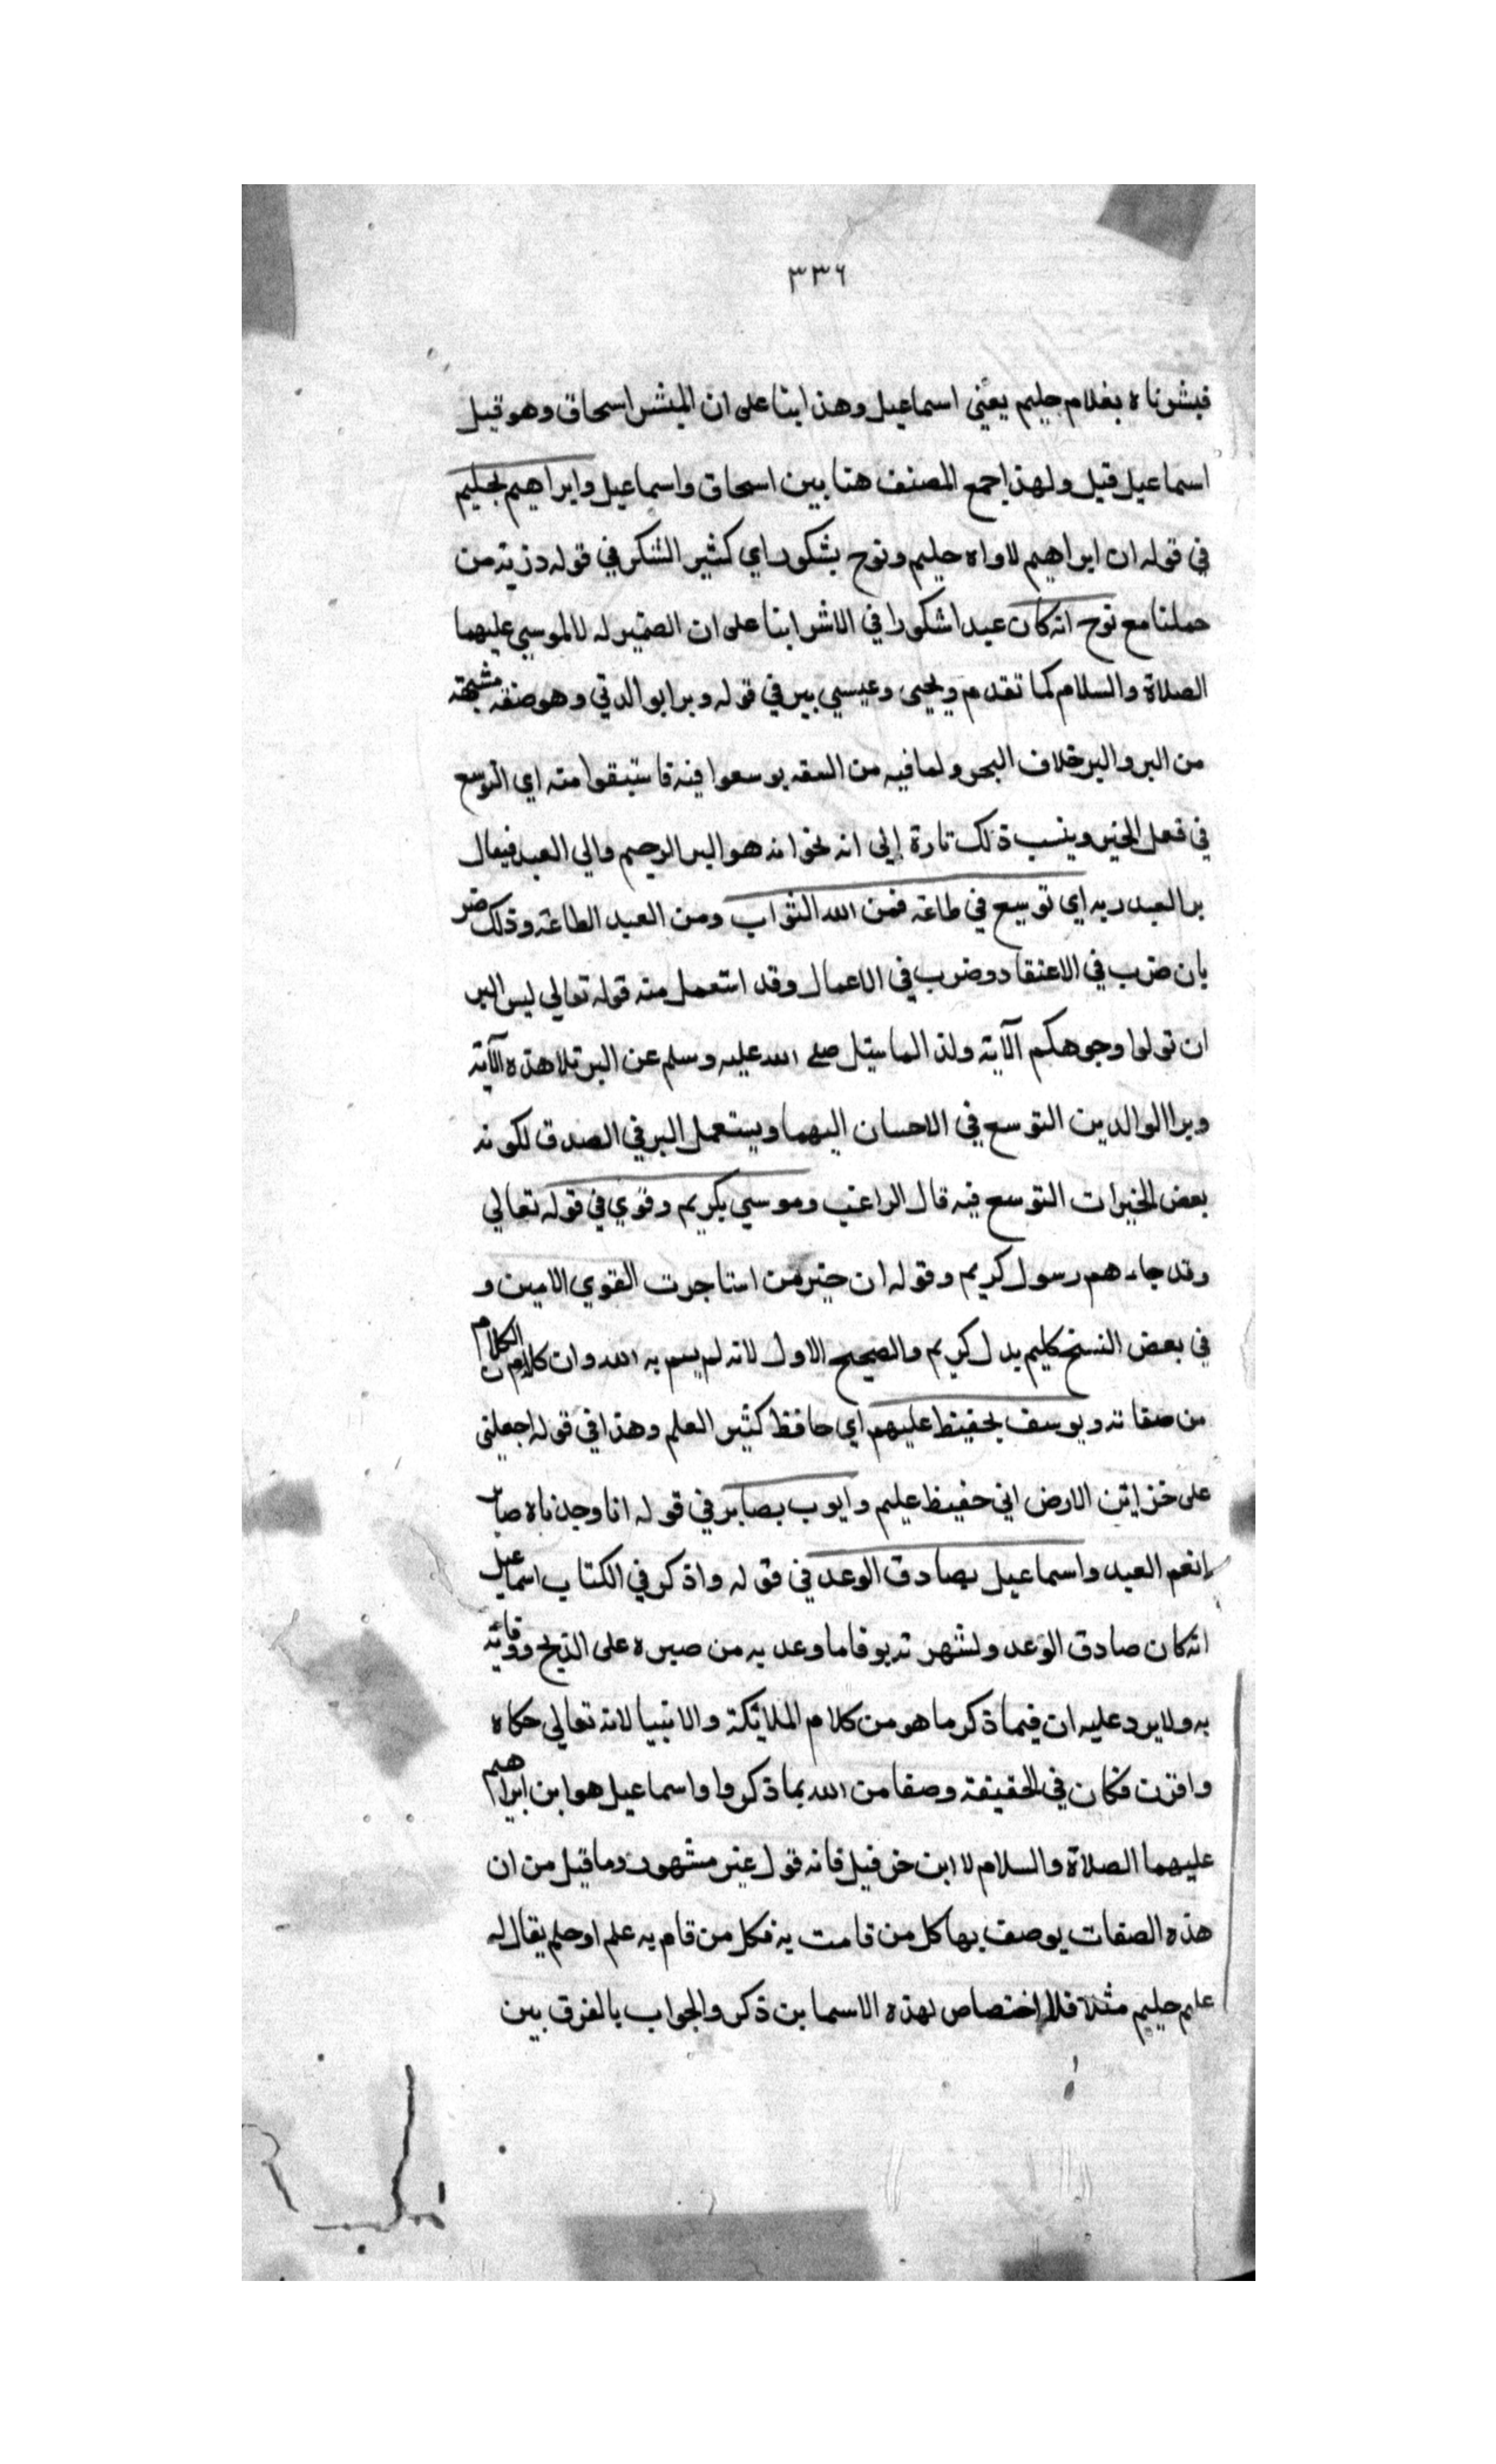 ٣٣٦
فبشرناه بغلام حليم يعني اسماعيل وهذا بنا على ان المبشر اسحاق وهو قيل
اسماعيل قيل ولهذا جمع المصنف هنا بين اسحاق واسماعيل وابراهيم بحليم
في قوله ان ابراهيم لاواه حليم ونوح بشكور اي كثير الشكر في قوله ذرية من
حملنا مع نوح انه كان عبدا شكورا في الاشرا بنا على ان الضمير له لا لموسي عليهما
الصلاة والسلام كما تقدم ويحيى وعيسي ببر في قوله وبرا بوالدتي وهو صفة مشبهة
من البر والبر خلاف البحر ولما فيه من السعه يوسعوا فيه فاستبقوا منه اي التوسع
في فعل الخير وينسب ذلك تارة إلى انه نحو انه هو البر الرحيم والي العبد فيقال
بر العبد ربه اي توسع في طاعة فمن الله الثواب ومن العبد الطاعة وذلك ضر
بان ضرب في الاعتقاد وضرب في الاعمال وقد استعمل منه قوله تعالي ليس البر
ان تولوا وجوهكم الآية ولذا لما سئل صلى الله عليه وسلم عن البر تلا هذه الآية
وبر الوالدين التوسع في الاحسان اليهما ويستعمل البر في الصدق لكونه
بعض الخيرات التوسع فيه قال الراغب وموسي بكريم وقوي في قوله تعالي
وقد جاءهم رسول كريم وقوله ان خير من استاجرت القوي الامين و
في بعض النسخ كليم بدل كريم والصحيح الاول لانه لم يسم به الله وان كان الكلام
من صفاته ويوسف بحفيظ عليهم اي حافظ كثير العلم وهذا في قوله اجعلني
على خزائن الارض اني حفيظ عليم وايوب بصابر في قوله انا وجدناه صابر
انعم العبد واسماعيل بصادق الوعد في قوله واذكر في الكتاب اسماعيل
انه كان صادق الوعد ولشهرته بوفا ما وعد به من صبره على الذبح ووفائه
به ولا يرد عليه ان فيما ذكر ما هو من كلام الملائكة والانبيا لانه تعالي حكاه
واقرت فكان في الحقيقة وصفا من الله بما ذكروا واسماعيل هو ابن ابراهيم
عليهما الصلاة والسلام لا ابن حزفيل فانه قول غير مشهور وما قيل من ان
هذه الصفات يوصف بها كل من قامت به فكل من قام به علم او حلم يقال له
عليم حليم مثلا فلا اختصاص لهذه الاسما بن ذكر والجواب بالفرق بين